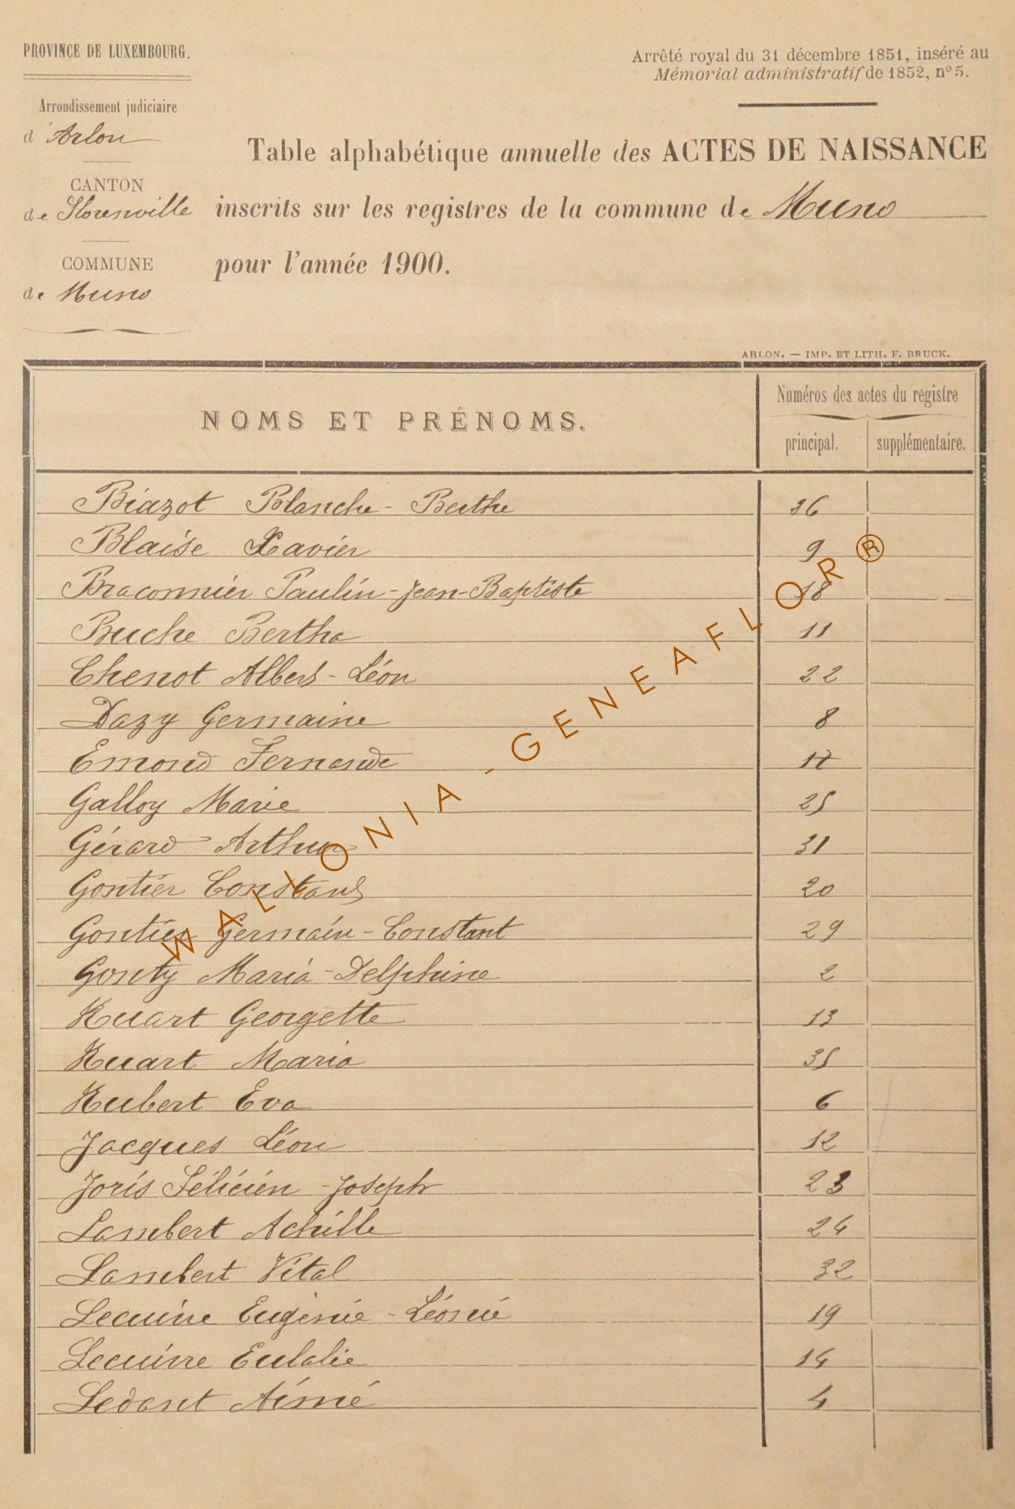 PROVINCE DE LUXEMBOURG.
Arrondissement judiciaire
d'Arlon
CANTON
de Florenville
COMMUNE
de Muno
Arrêté royal du 31 décembre 1851, inséré au
Mémorial administratif de 1852, n° 5.
Table alphabétique annuelle des ACTES DE NAISSANCE
inscrits sur les registres de la commune de Muno
pour l'année 1900.
ARLON. — IMP. ET LITH. F. BRUCK.
NOMS ET PRÉNOMS.
Numéros des actes du registre
principal. supplémentaire.
Biazot Blanche-Berthe 36
Blaise Xavier 9
Braconnier Paulin-Jean-Baptiste 18
Buche Bertha 11
Chenot Albert-Léon 22
Dazy Germaine 8
Emond Fernande
Galloy Marie 25
Gérard Arthur 31
Gontier Constant 20
Gontier Germain-Constant 29
Gonty Maria-Delphine 2
Huart Georgette 13
Huart Maria 35
Hubert Eva 6
Jacques Léon 12
Joris Félicien-Joseph 23
Lambert Achille 24
Lambert Vital 32
Lecuivre Eugénie-Léonie 19
Lecuivre Eulalie 14
Ledant Aimé 4
WALLONIA-GENEAFLOR®